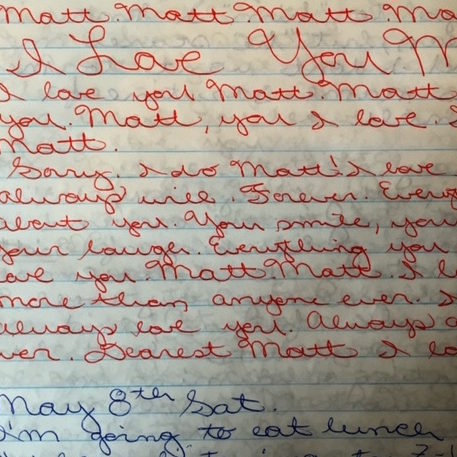 Matt. Matt. Matt. Ma
I Love You M
I love you Matt. Matt
you. Matt, you I love.
Matt.
Sorry. I do Matt. I love
always will. Forever. Every
about you. Your smile, you
your laugh. Everything you
love you. Matt Matt. I l
more than anyone ever. I
always love you. Always a
ver. Dearest Matt I lo
May 8th Sat.
I'm going to eat lunch